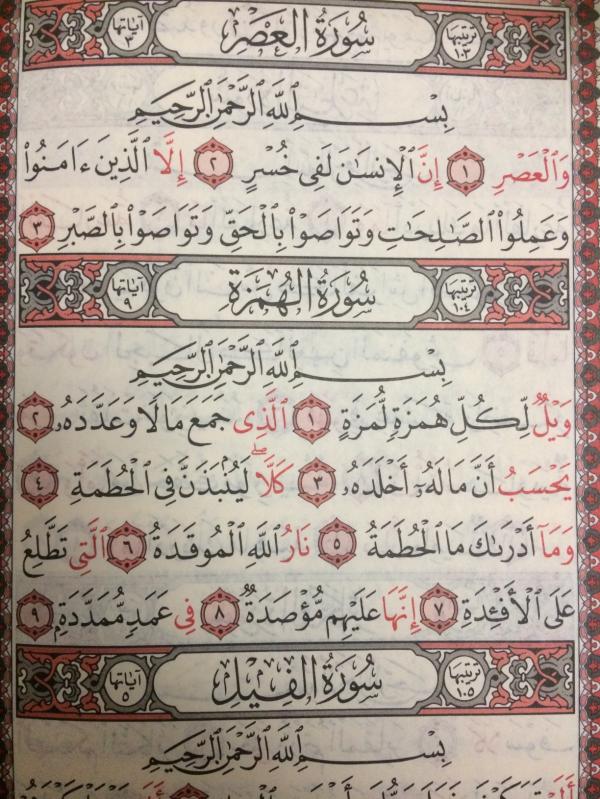 ترتيبها ١٠٣ سُورَةُ الْعَصْرِ آياتها ٣
بِسْمِ اللَّهِ الرَّحْمَٰنِ الرَّحِيمِ
وَالْعَصْرِ ١ إِنَّ الْإِنسَٰنَ لَفِى خُسْرٍ ٢ إِلَّا الَّذِينَ ءَامَنُوا۟
وَعَمِلُوا۟ الصَّٰلِحَٰتِ وَتَوَاصَوْا۟ بِالْحَقِّ وَتَوَاصَوْا۟ بِالصَّبْرِ ٣
ترتيبها ١٠٤ سُورَةُ الْهُمَزَةِ آياتها ٩
بِسْمِ اللَّهِ الرَّحْمَٰنِ الرَّحِيمِ
وَيْلٌ لِّكُلِّ هُمَزَةٍ لُّمَزَةٍ ١ الَّذِى جَمَعَ مَالًا وَعَدَّدَهُۥ ٢
يَحْسَبُ أَنَّ مَالَهُۥٓ أَخْلَدَهُۥ ٣ كَلَّا ۖ لَيُنۢبَذَنَّ فِى الْحُطَمَةِ ٤
وَمَآ أَدْرَىٰكَ مَا الْحُطَمَةُ ٥ نَارُ اللَّهِ الْمُوقَدَةُ ٦ الَّتِى تَطَّلِعُ
عَلَى الْأَفْـِٔدَةِ ٧ إِنَّهَا عَلَيْهِم مُّؤْصَدَةٌ ٨ فِى عَمَدٍ مُّمَدَّدَةٍۭ ٩
ترتيبها ١٠٥ سُورَةُ الْفِيلِ آياتها ٥
بِسْمِ اللَّهِ الرَّحْمَٰنِ الرَّحِيمِ